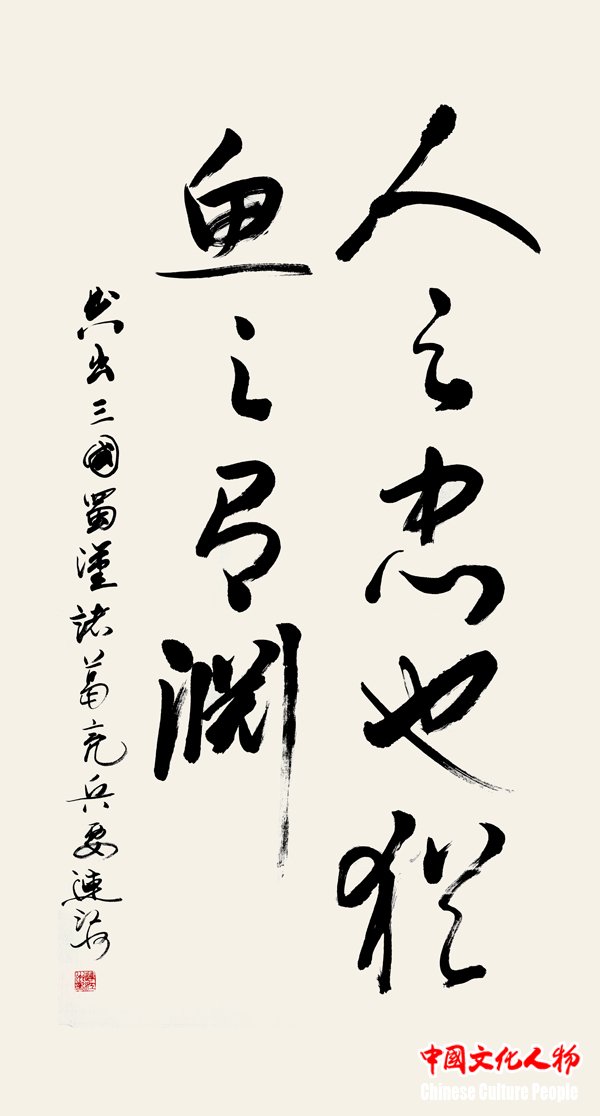 人之忠也犹
鱼之有渊
典出三國蜀漢諸葛亮兵要連
中國文化人物
Chinese Culture People